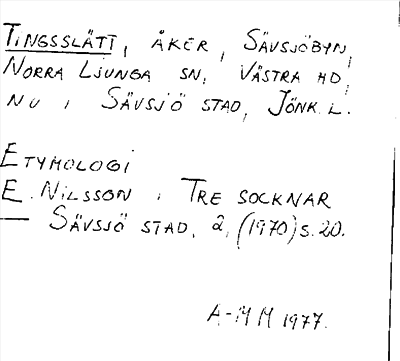 TINGSSLÄTT, ÅKER, SÄVSJÖBYN,
NORRA LJUNGA SN, VÄSTRA HD,
NU I SÄVSJÖ STAD, JÖNK. L.
ETYMOLOGI
E. NILSSON I TRE SOCKNAR
— SÄVSJÖ STAD, 2, (1970) S. 20.
A-M M 1977.